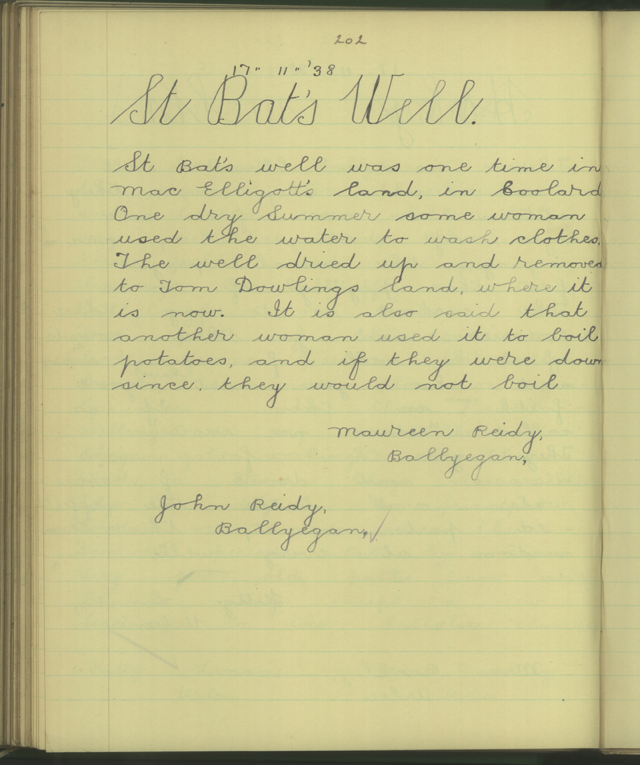 202
17" 11" '38
St Bat's Well.
St Bat's well was one time in
Mac Elligott's land, in Coolard
One dry Summer some woman
used the water to wash clothes.
The well dried up and removed
to Tom Dowlings land, where it
is now. It is also said that
another woman used it to boil
potatoes, and if they were down
since, they would not boil
Maureen Reidy,
Ballyegan,
John Reidy,
Ballyegan,